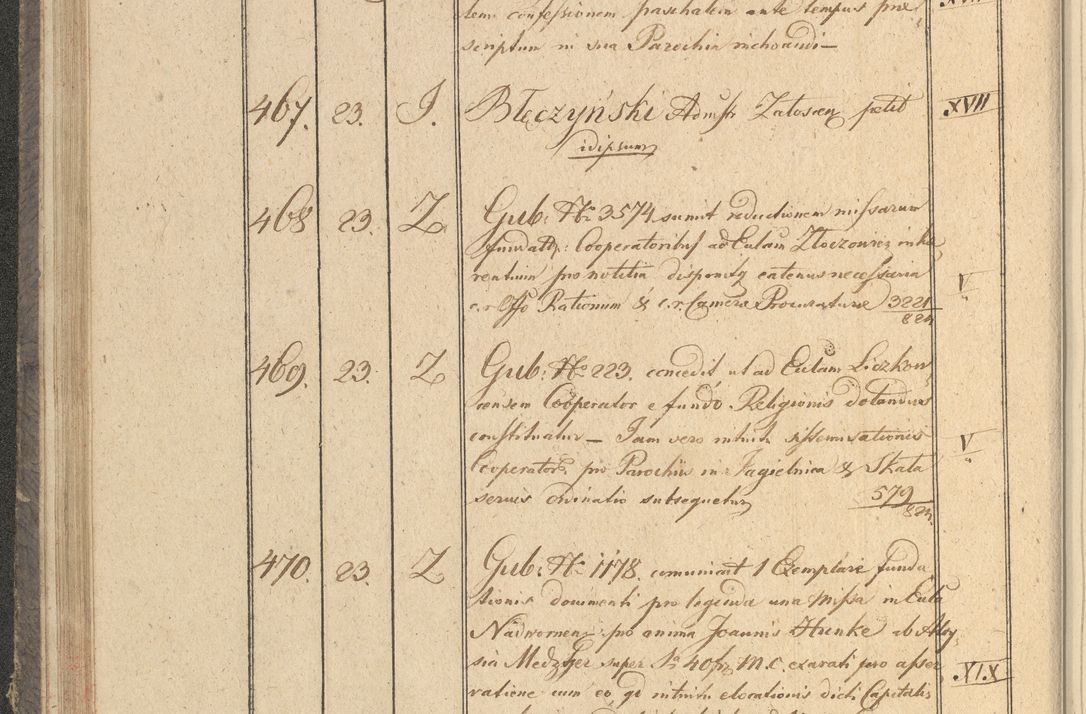 tem confessionem paschalem ante tempus præ-
scriptum in sua Parochia inchoandi —
XVII
467. 23. I. Błeczyński Admstr Załoscen petit XVII
idipsum
468 23. Z Gub: No 3574 sumit reductionem missarum
fundatt: Cooperatoribus ad Eulam Złoczowiez inhæ-
rentium pro notitia disponitq eatenus necessaria V
c.r. Offo Rationum & c.r. Cameræ Procuraturæ 3221
824
469. 23. Z Gub: No 223. concedit ut ad Eulam Liczkow-
censem Cooperator e fundo Religionis dotandus
constituatur — Jam vero intuitu sistemisationis V
Cooperator pro Parochiis in Jagielnica & Skala
serius ordinatio subsequetur 579
824.
470. 23. Z Gub: No 1178. comunicat 1 Exemplare funda
tionis documenti pro legenda una missa in Eula
Nadwornen pro anima Joannis Hunke ab Aloy
sia Medzger super No 40 fr M.C. exarati pro asser XIX
vatione cum eo qd intuitu elocationis dicti Capitalis